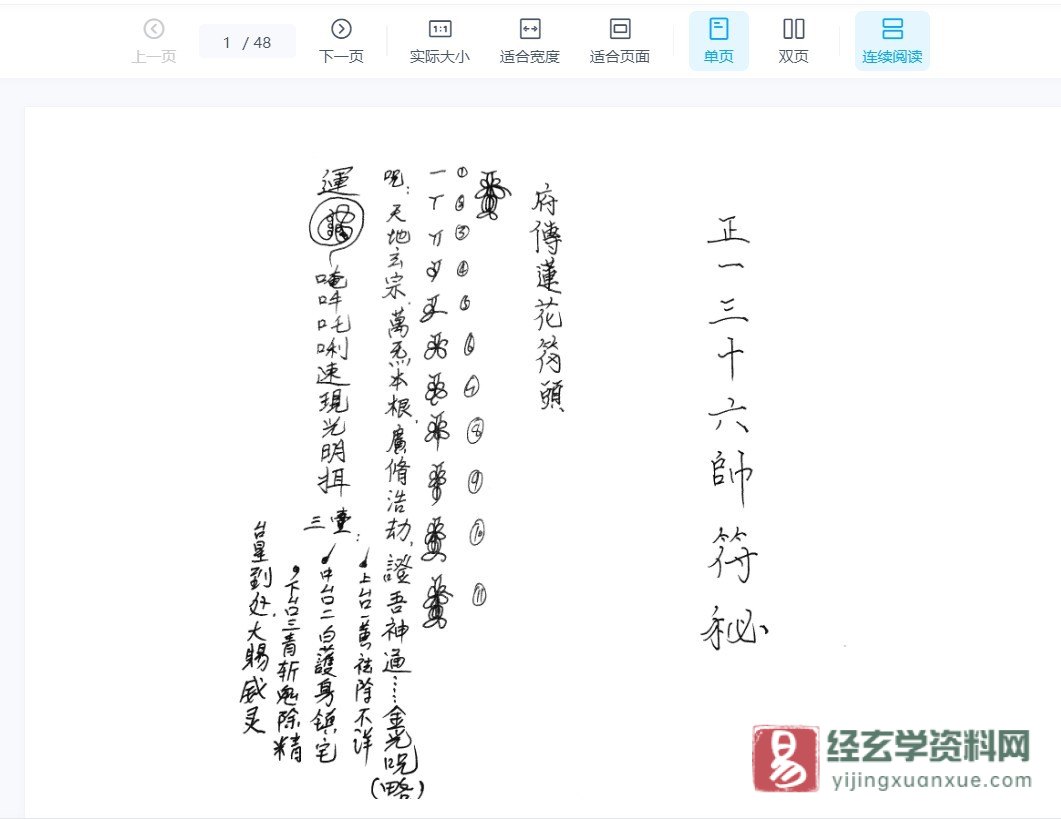 上一页
1 / 48
下一页
1:1
实际大小
适合宽度
适合页面
单页
双页
连续阅读
正一三十六帥符秘
府傳蓮花符頭
① ② ③ ④ ⑤ ⑥ ⑦ ⑧ ⑨ ⑩ ⑪
呪：天地玄宗，萬炁本根，廣脩浩劫，證吾神通……金光呪（略）
運
唵吽吒唎速現光明揖
三臺：
上台一黄祛除不详
中台二白護身鎮宅
下台三青斩鬼除精
台星到处，大賜威灵
易
经玄学资料网
yijingxuanxue.com